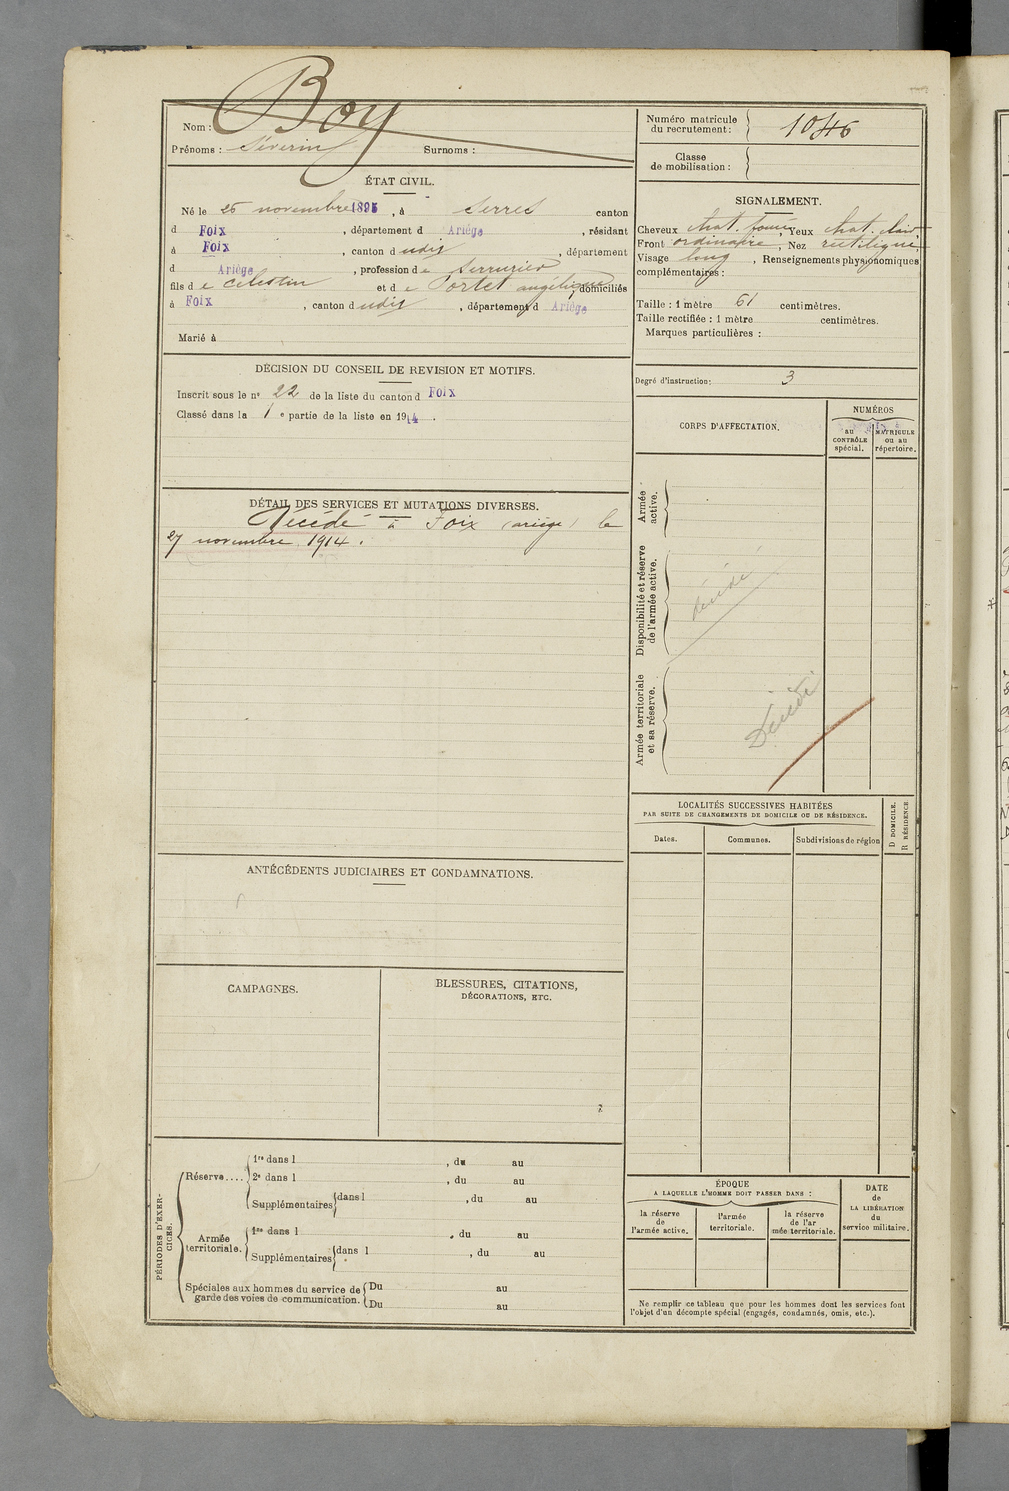 Boy
Nom :
Prénoms : Séverin Surnoms :
ÉTAT CIVIL.
Né le 25 novembre 1895, à Serres canton
d Foix, département d Ariège, résidant
à Foix, canton d udit, département
d Ariège, profession de Serrurier
fils de Célestin et de Portet angélique, domiciliés
à Foix, canton dudit, département d Ariège
Marié à
DÉCISION DU CONSEIL DE REVISION ET MOTIFS.
Inscrit sous le nº 22 de la liste du canton d Foix
Classé dans la 1e partie de la liste en 1914.
DÉTAIL DES SERVICES ET MUTATIONS DIVERSES.
Décédé à Foix (ariège) le
27 novembre 1914.
ANTÉCÉDENTS JUDICIAIRES ET CONDAMNATIONS.
CAMPAGNES.
BLESSURES, CITATIONS,
DÉCORATIONS, ETC.
PÉRIODES D'EXER-
CICES.
Réserve.... 1re dans l , du au
2e dans l , du au
Supplémentaires dans l , du au
Armée
territoriale. 1re dans l , du au
Supplémentaires dans l , du au
Spéciales aux hommes du service de Du au
garde des voies de communication. Du au
Numéro matricule
du recrutement : 1046
Classe
de mobilisation :
SIGNALEMENT.
Cheveux chat. foncé, Yeux chat. clair,
Front ordinaire, Nez rectiligne,
Visage long, Renseignements physionomiques
complémentaires :
Taille : 1 mètre 61 centimètres.
Taille rectifiée : 1 mètre centimètres.
Marques particulières :
Degré d'instruction : 3
CORPS D'AFFECTATION.
NUMÉROS
au
CONTRÔLE
spécial.
MATRICULE
ou au
répertoire.
Armée
active.
Disponibilité et réserve
de l'armée active.
décédé
Armée territoriale
et sa réserve.
Décédé
LOCALITÉS SUCCESSIVES HABITÉES
PAR SUITE DE CHANGEMENTS DE DOMICILE OU DE RÉSIDENCE.
D DOMICILE.
R RÉSIDENCE
Dates. Communes. Subdivisions de région
ÉPOQUE
A LAQUELLE L'HOMME DOIT PASSER DANS :
la réserve
de
l'armée active.
l'armée
territoriale.
la réserve
de l'ar
mée territoriale.
DATE
de
LA LIBÉRATION
du
service militaire.
Ne remplir ce tableau que pour les hommes dont les services font
l'objet d'un décompte spécial (engagés, condamnés, omis, etc.).